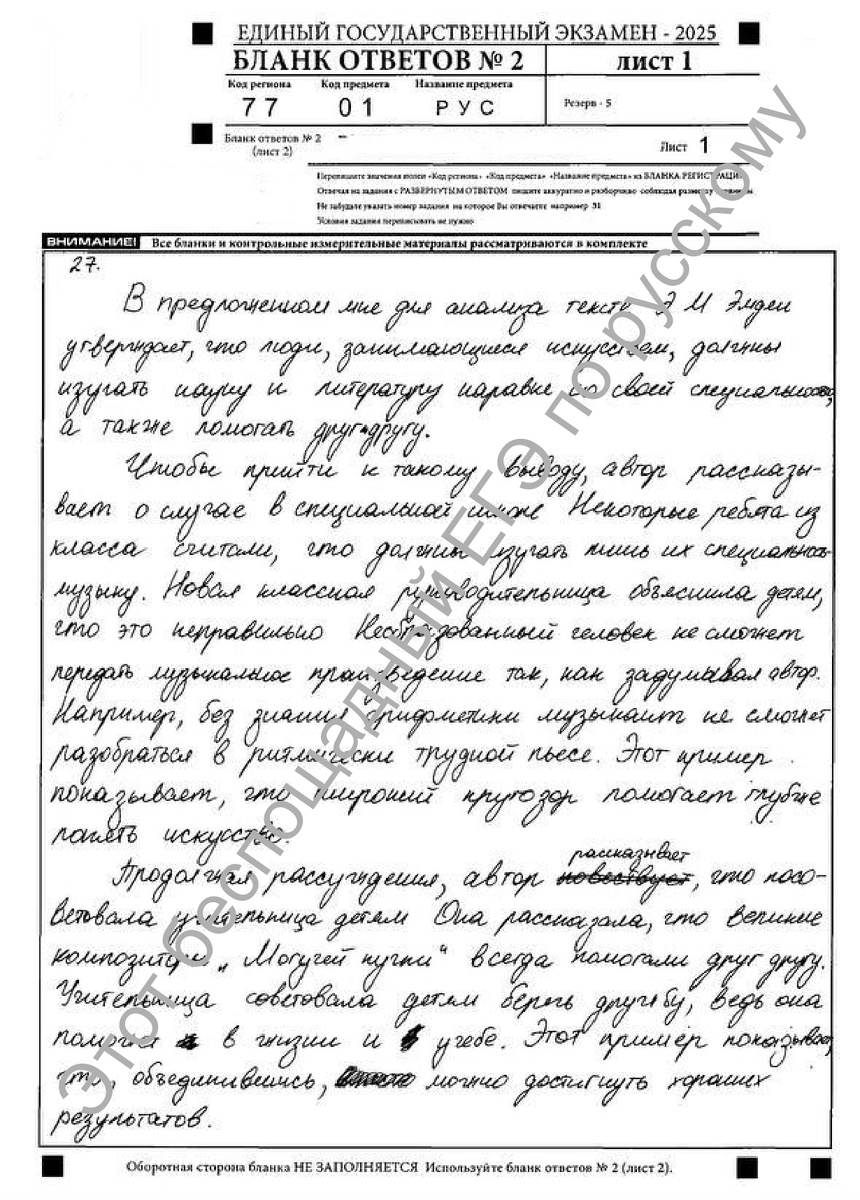 ЕДИНЫЙ ГОСУДАРСТВЕННЫЙ ЭКЗАМЕН - 2025
БЛАНК ОТВЕТОВ № 2 лист 1
Код региона Код предмета Название предмета
77 01 РУС Резерв - 5
Бланк ответов № 2 (лист 2) - Лист 1
Перепишите значения полей «Код региона» «Код предмета» «Название предмета» из БЛАНКА РЕГИСТРАЦИИ
Отвечая на задания с РАЗВЕРНУТЫМ ОТВЕТОМ пишите аккуратно и разборчиво соблюдая разметку
Не забудьте указать номер задания на которое Вы отвечаете например 31
Условия задания переписывать не нужно
ВНИМАНИЕ! Все бланки и контрольные измерительные материалы рассматриваются в комплекте
27.
В предложенном мне для анализа тексте Э М Эмден
утверждает, что люди, занимающиеся искусством, должны
изучать науку и литературу наравне со своей специальностью,
а также помогать друг другу.
Чтобы прийти к такому выводу, автор рассказы-
вает о случае в специальной школе Некоторые ребята из
класса считали, что должны изучать лишь их специальность
музыку. Новая классная руководительница объяснила детям,
что это неправильно Необразованный человек не сможет
передать музыкальное произведение так, как задумывал автор.
Например, без знания арифметики музыкант не сможет
разобраться в ритмически трудной пьесе. Этот пример
показывает, что широкий кругозор помогает глубже
понять искуство.
Продолжая рассуждения, автор рассказывает, что посо-
ветовала учительница детям Она рассказала, что великие
композиторы „Могучей кучки“ всегда помогали друг другу.
Учительница советовала детям беречь дружбу, ведь она
помогает в жизни и учебе. Этот пример показывает,
что, объединившись, можно достигнуть хороших
результатов.
Оборотная сторона бланка НЕ ЗАПОЛНЯЕТСЯ Используйте бланк ответов № 2 (лист 2).
Этот беспощадный ЕГЭ по русскому